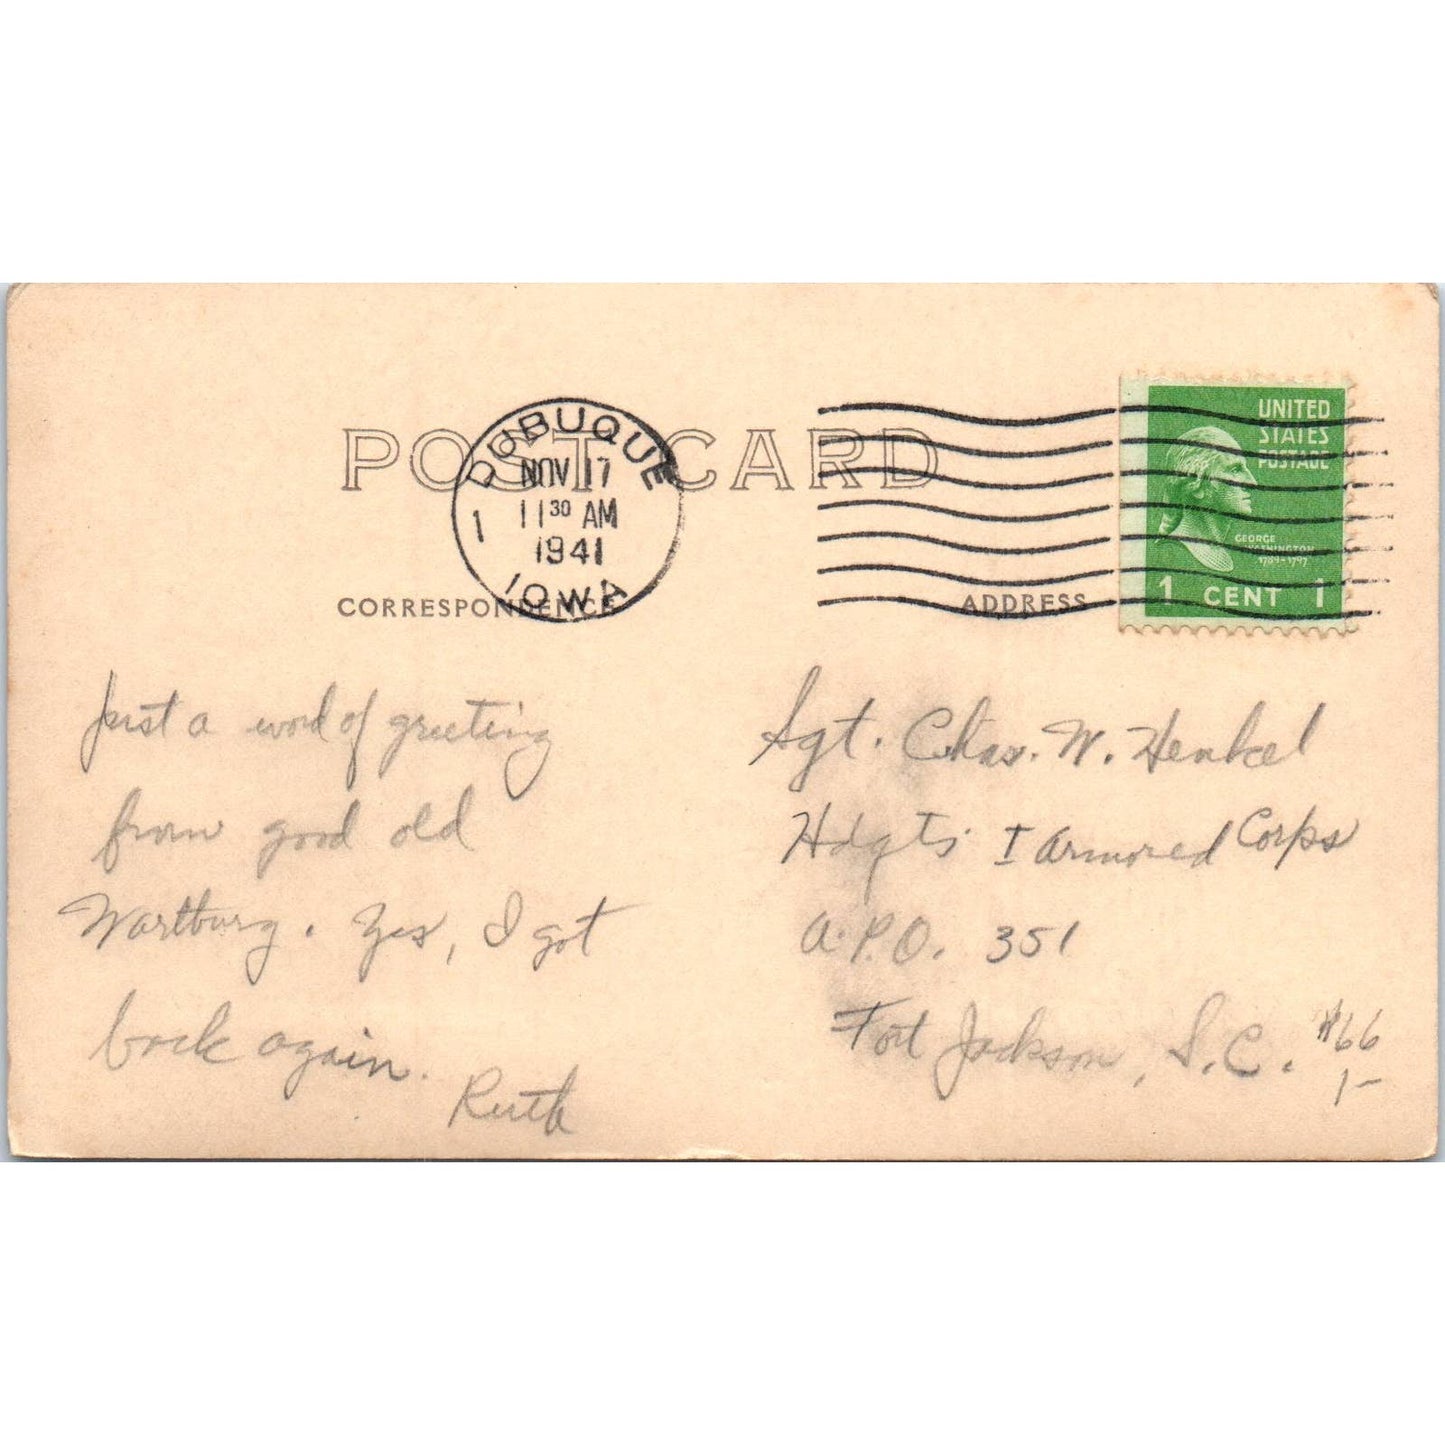 POST CARD
DUBUQUE
NOV 17
11 30 AM
1941
1
IOWA
UNITED
STATES
POSTAGE
GEORGE
WASHINGTON
1789-1797
1 CENT 1
CORRESPONDENCE
ADDRESS
Just a word of greeting
from good old
Wartburg. Yes, I got
back again.
Ruth
Sgt. Chas. W. Henkel
Hdqts I Armored Corps
A.P.O. 351
Fort Jackson, S.C.
#66
1-